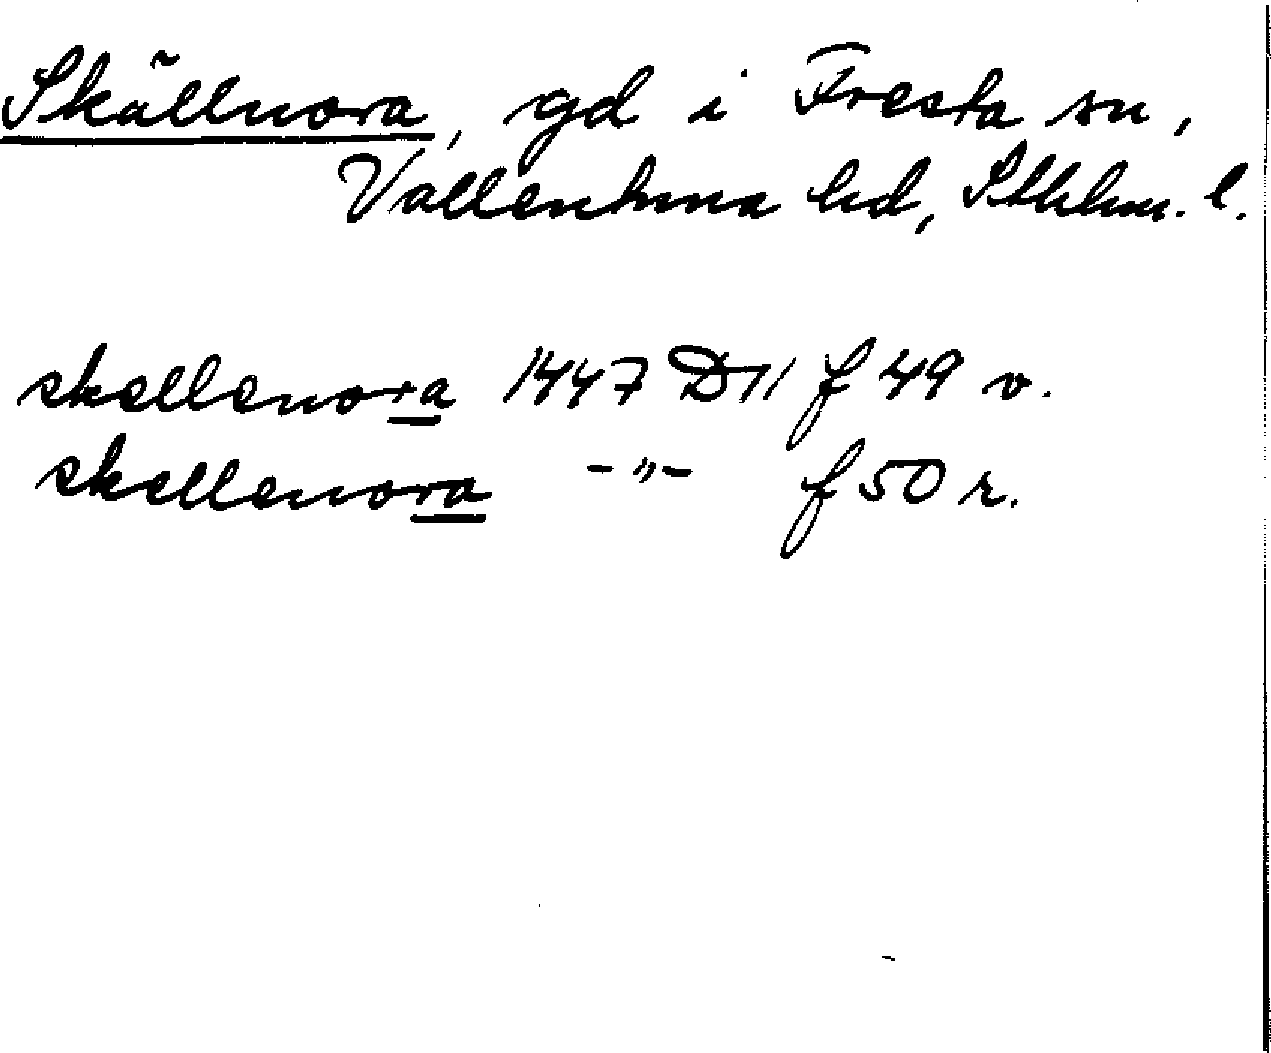 Skällnora, gd i Fresta sn,
Vallentuna hd, Sthlm. l.
skellenora 1447 D11 f 49 v.
skellenora -"- f 50 r.